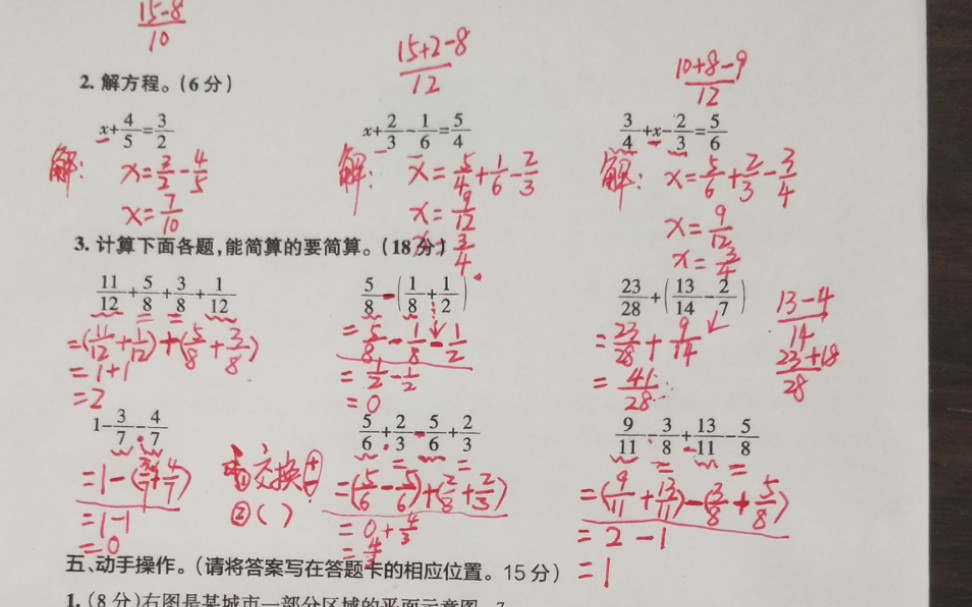 15-8
10
15+2-8
12
10+8-9
12
2. 解方程。(6分)
x+4/5=3/2
x+2/3-1/6=5/4
3/4+x-2/3=5/6
解: x=3/2-4/5
x=7/10
解: x=5/4+1/6-2/3
x=9/12
x=3/4
解: x=5/6+2/3-3/4
x=9/12
x=3/4
3. 计算下面各题,能简算的要简算。(18分)
11/12+5/8+3/8+1/12
=(11/12+1/12)+(5/8+3/8)
=1+1
=2
5/8-(1/8+1/2)
=5/8-1/8-1/2
=1/2-1/2
=0
23/28+(13/14-2/7)
=23/28+9/14
=41/28
13-4
14
23+18
28
1-3/7-4/7
=1-(3/7+4/7)
=1-1
=0
①交换
②( )
5/6+2/3-5/6+2/3
=(5/6-5/6)+(2/3+2/3)
=0+4/3
=4/3
9/11-3/8+13/11-5/8
=(9/11+13/11)-(3/8+5/8)
=2-1
=1
五、动手操作。(请将答案写在答题卡的相应位置。15分)
1. (8分)右图是某城市一部分区域的平面示意图。